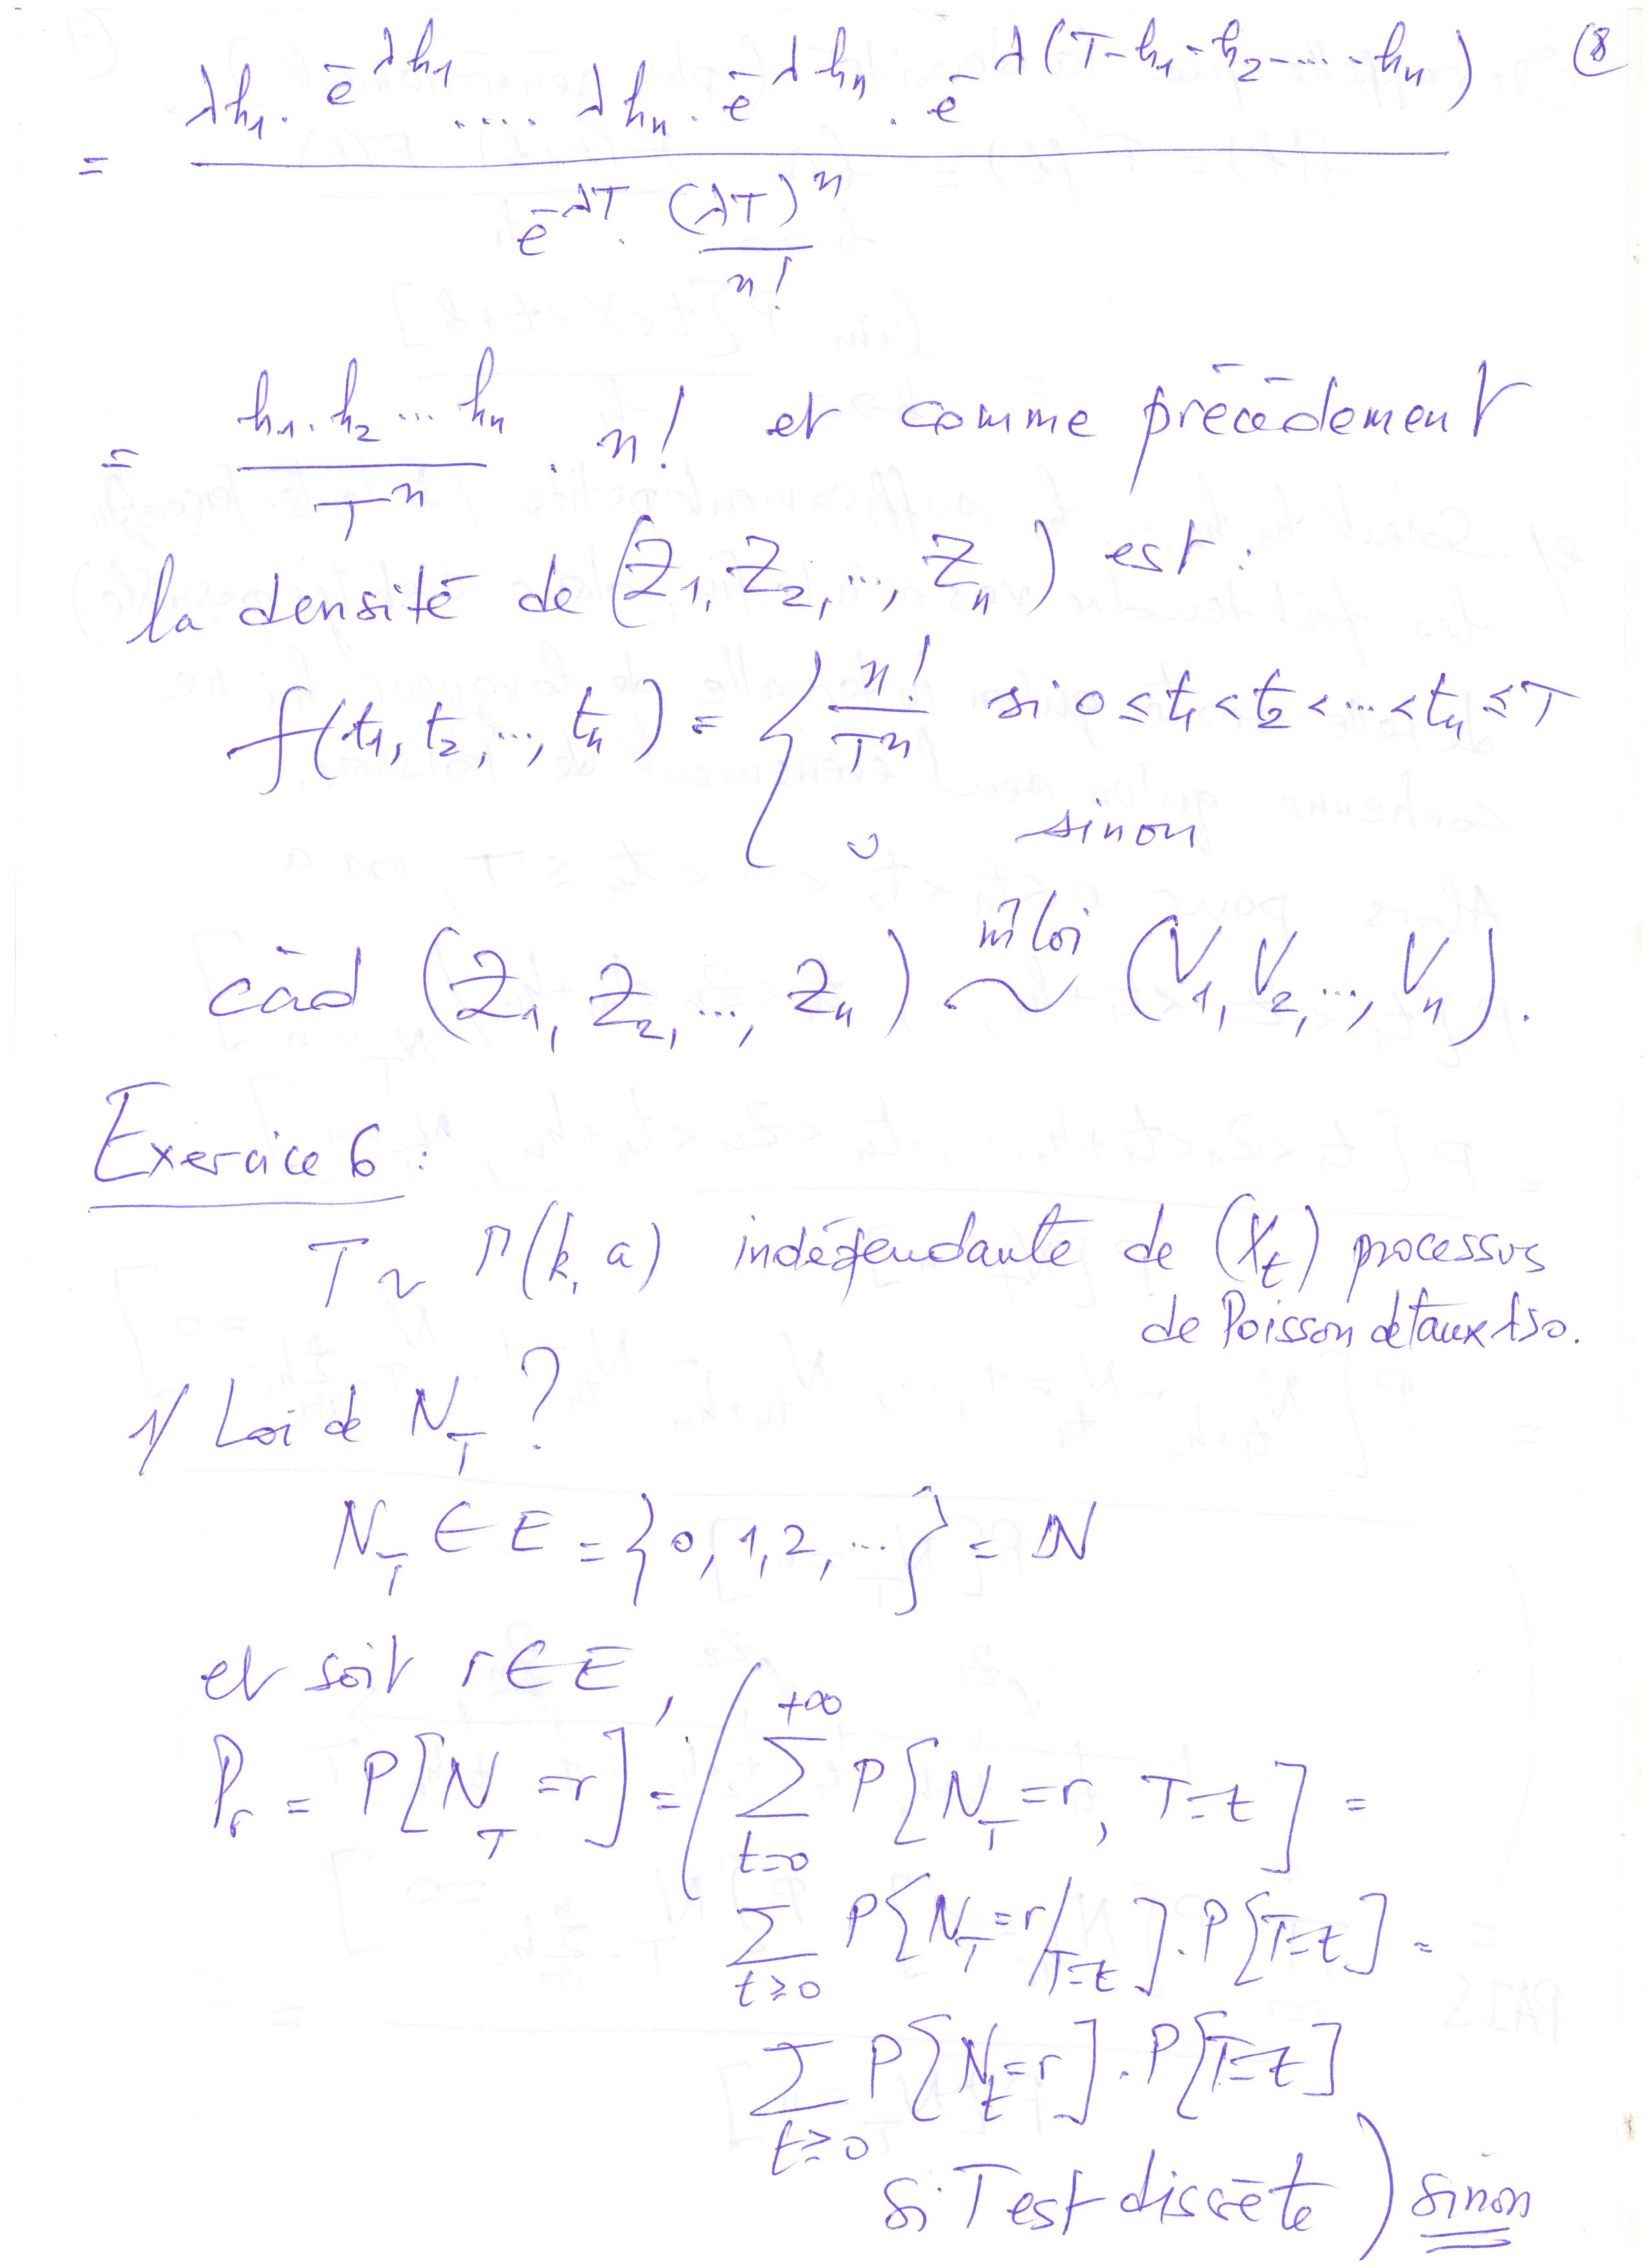 (8
= λh₁. e^-λh₁ .... λhₙ. e^-λhₙ . e^-λ(T-h₁-h₂-...-hₙ) / e^-λT. (λT)ⁿ/n!
= h₁. h₂ ... hₙ / Tⁿ . n! et comme précédement
la densité de (Z₁, Z₂, ..., Zₙ) est :
f(t₁, t₂, ..., tₙ) = { n!/Tⁿ si 0 ≤ t₁ < t₂ < ... < tₙ ≤ T
0 sinon
càd (Z₁, Z₂, ..., Zₙ) ~ m̂ loi (V₁, V₂, ..., Vₙ).
Exercice 6 :
T ~ Γ(k, a) indépendante de (X_t) processus
de Poisson de taux λ>0.
1/ Loi de N_T ?
N_T ∈ E = {0, 1, 2, ...} = ℕ
et soit r ∈ E,
P_r = P[N_T = r] = ( Σ_{t=0}^{+∞} P[N_T = r, T=t] =
Σ_{t≥0} P[N_T = r/T=t]. P[T=t] =
Σ_{t≥0} P[N_t = r]. P[T=t]
si T est discrète ) sinon